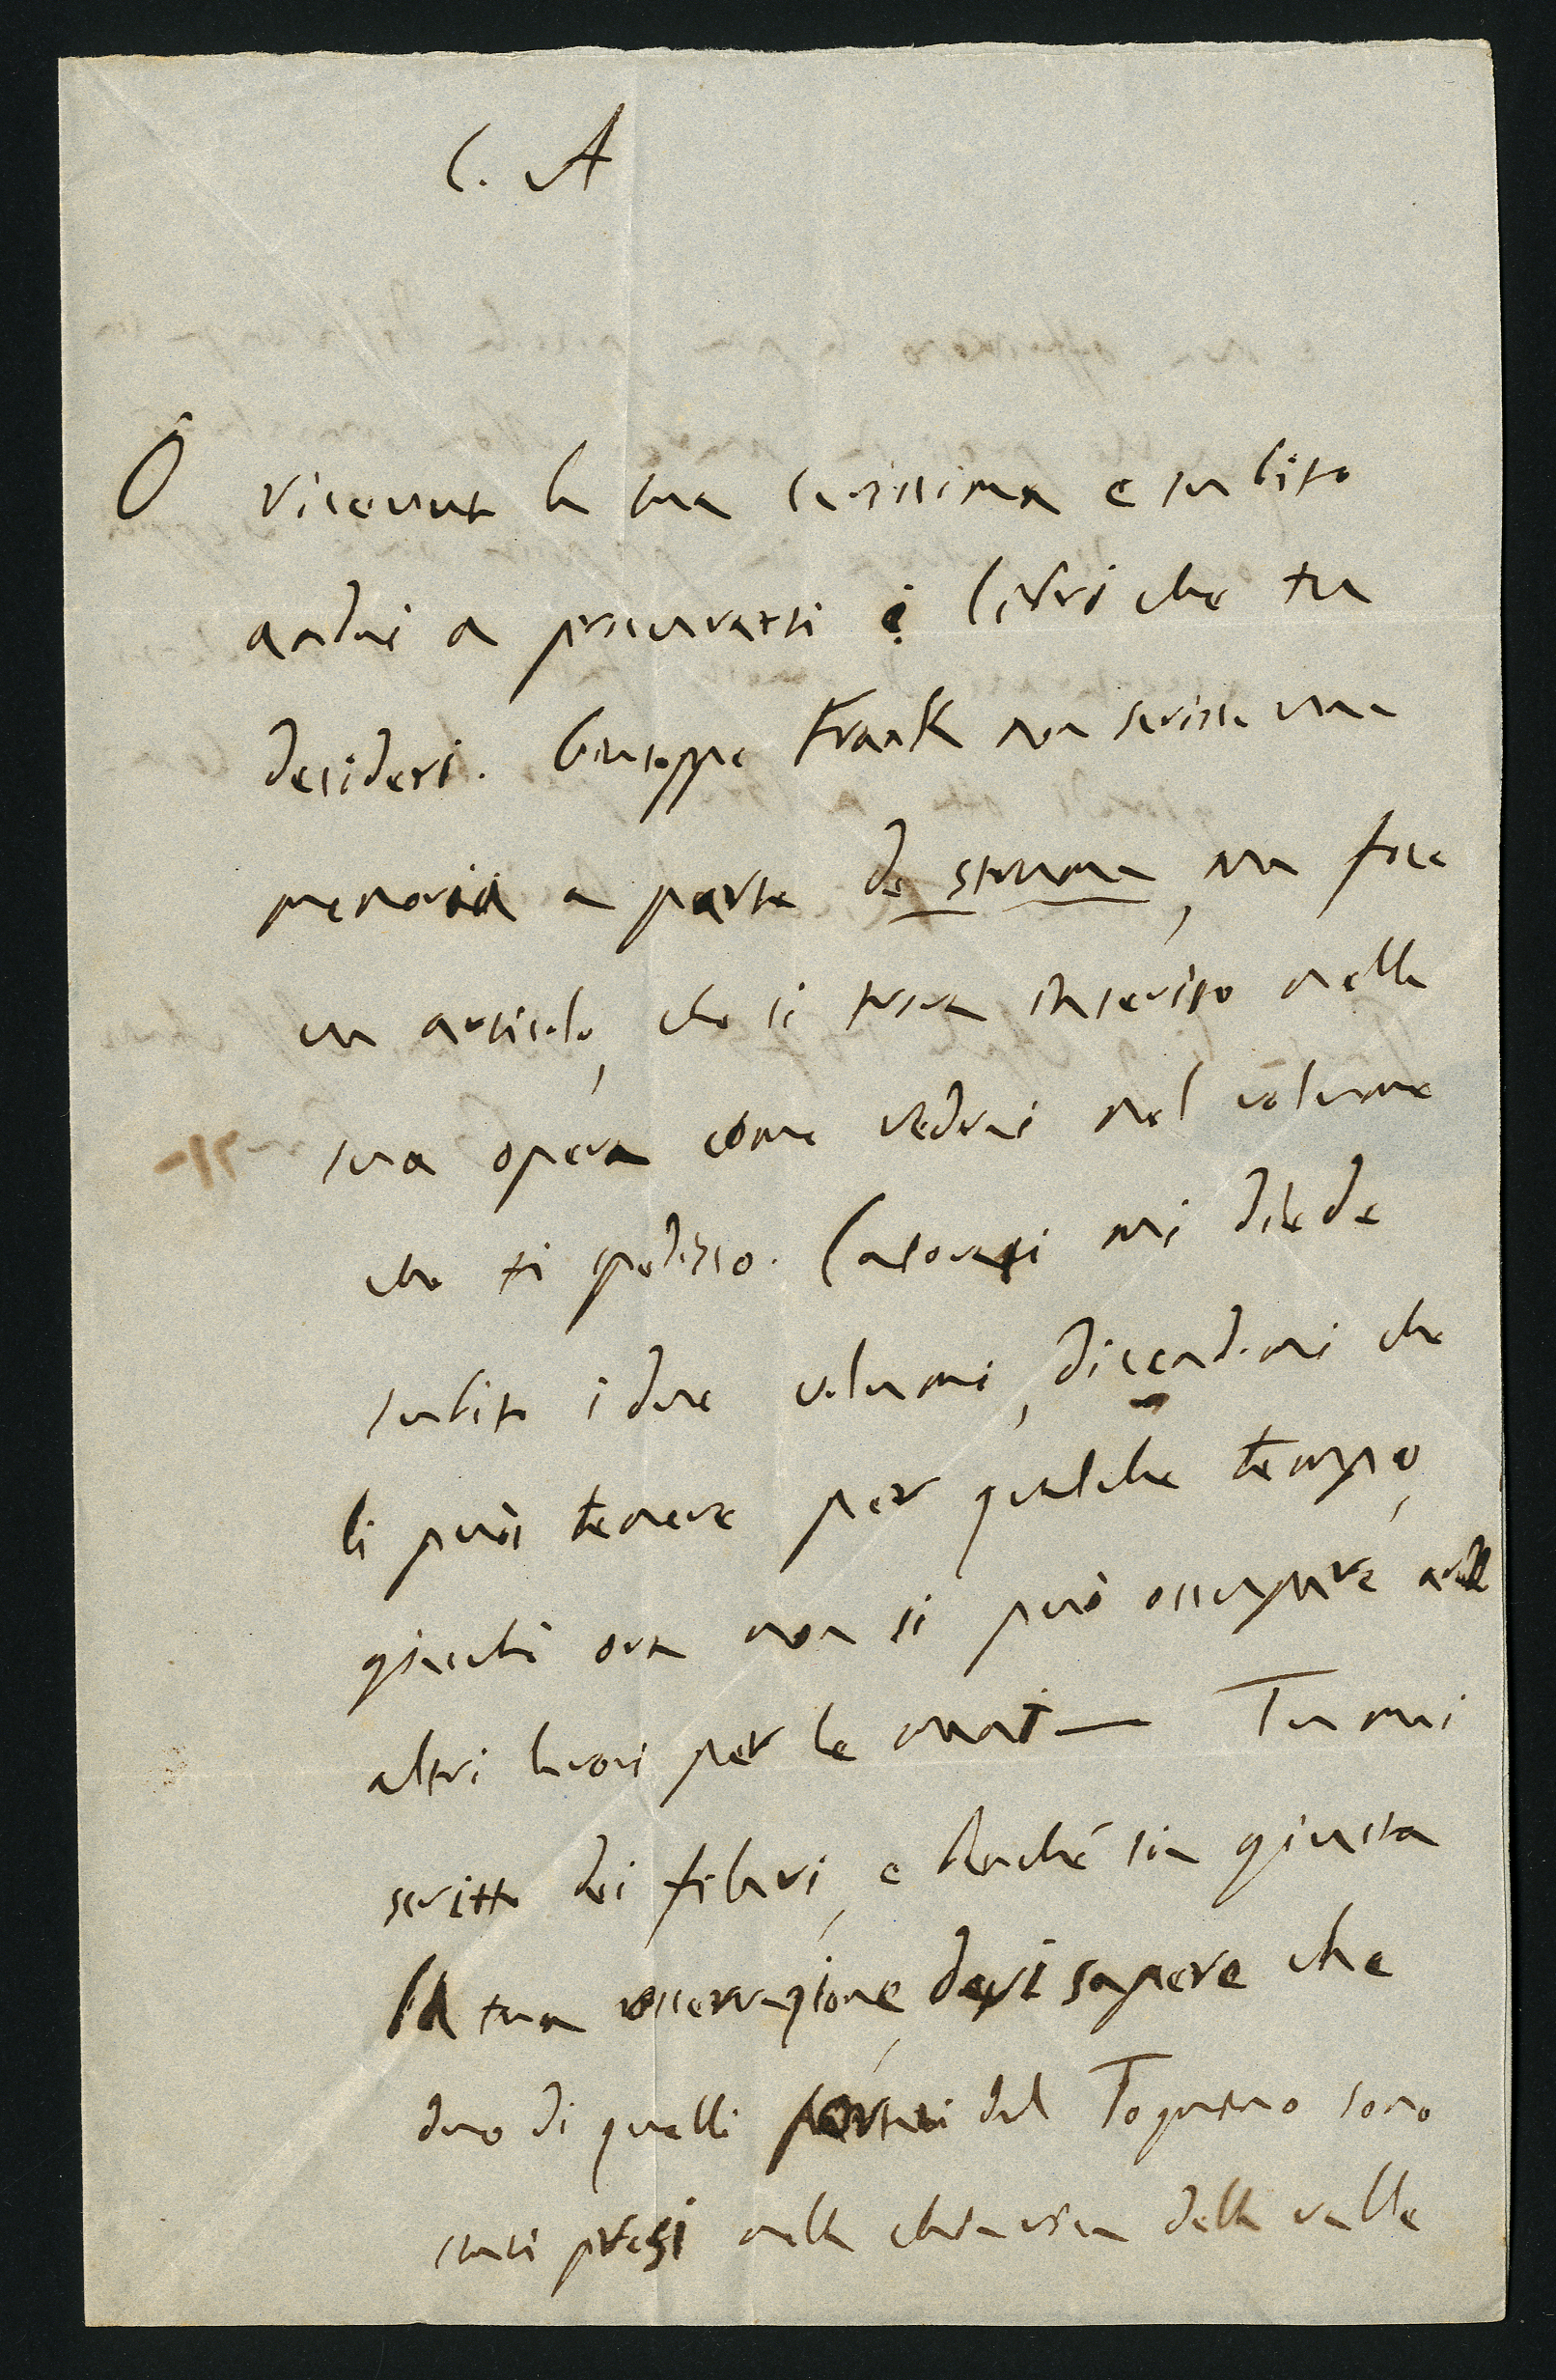 C. A
Ô ricevuto la tua carissima e subito
andai a procurarti i libri che tu
desideri. Giuseppe Frank non scrisse una
memoria a parte de struma, ma fece
un articolo, che si trova inserito nella
sua opera come vedrai nel volume
che ti spedisco. mi diede
subito i due volumi, dicendomi che
li puoi tenere per qualche tempo,
giacché ora non si può occupare
altri lavori per le Tu mi
scritto dei filari, e benché sia giusta
la tua osservazione, devi sapere che
duo di quelli del sono
stati presi nella della valle